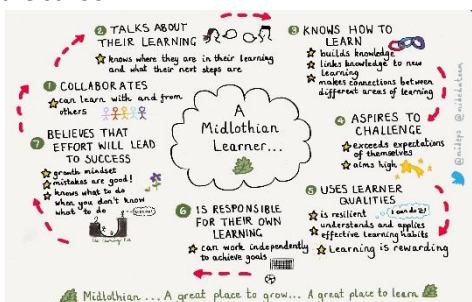 A
Midlothian
Learner...
1 COLLABORATES
can learn with and from
others
2 TALKS ABOUT
THEIR LEARNING
knows where they are in their learning
and what their next steps are
3 KNOWS HOW TO
LEARN
builds knowledge
links knowledge to new
learning
makes connections between
different areas of learning
4 ASPIRES TO
CHALLENGE
exceeds expectations
of themselves
aims high
5 USES LEARNER
QUALITIES
is resilient
I can do it!
understands and applies
effective learning habits
Learning is rewarding
6 IS RESPONSIBLE
FOR THEIR OWN
LEARNING
can work independently
to achieve goals
7 BELIEVES THAT
EFFORT WILL LEAD
TO SUCCESS
growth mindset
mistakes are good!
knows what to do
when you don't know
what to do
The Learning Pit
@mideps @mideduteam
Midlothian ... A great place to grow... A great place to learn